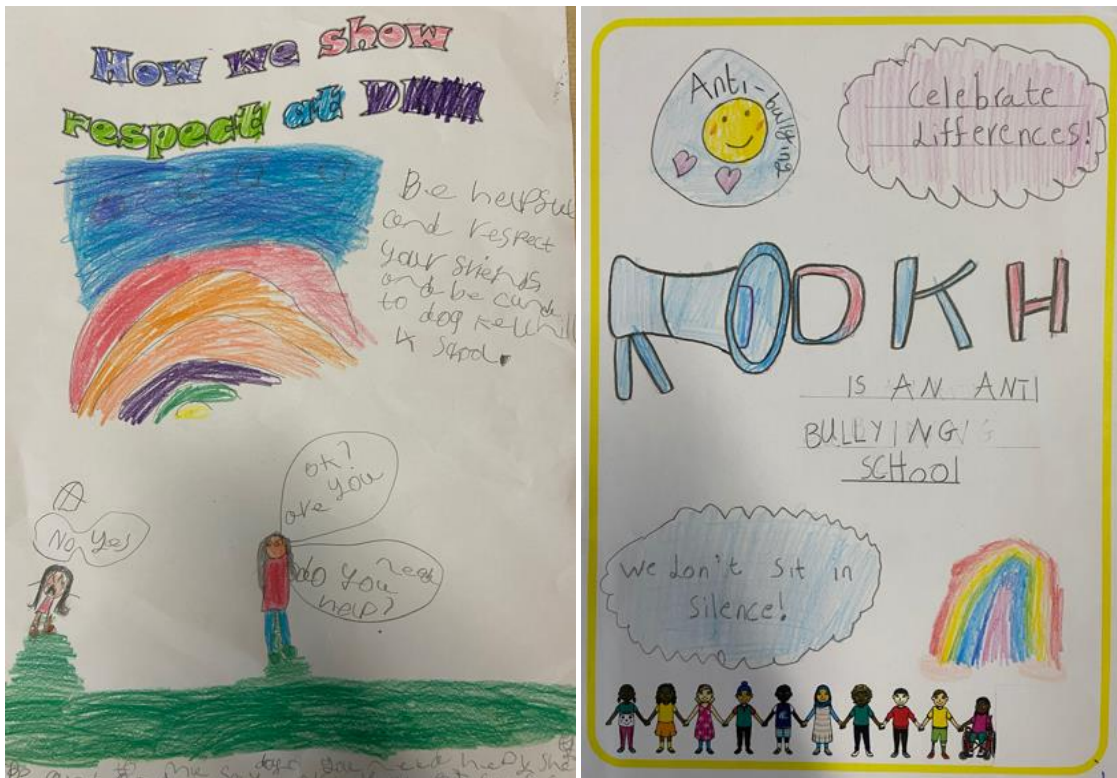 How we show
respect at
Be helpful
and respect
your friends
and be
to dog
No Yes
ok?
you
are
do you need
help?
Anti-bullying
Celebrate
differences!
DKH
IS AN ANTI
BULLYING
SCHOOL
We don't sit in
silence!